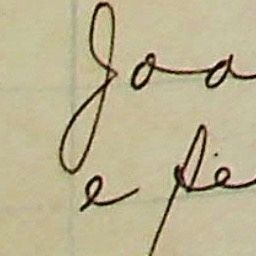 Joa
e fie